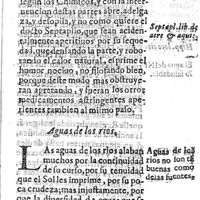 segun los Chimicos, y con la inter-
uencion destas partes abre, adelga
ça, y deopila, y no como quiere el
docto Septalio, que sean acciden-
talmente nutritiuos por su tenui-
dad, quedendiendo la parte, y robo-
rando el calor natural, è prime el
humor nociuo, no filofando bien,
Porque deste modo mas obstruye-
ran apretando, y fueran los otros
medicamentos astringentes ape-
rientes tambien al mismo paso.
Septapl. lib. de
aere & aquis.
Aguas de los rios.
LAS aguas de los rios alaban
muchos por la continuidad
de su curso, por su tenuidad
que el Sol les imprime, por su po-
ca crudeza; mas injustamente, por
que la diversidad de aguas que se
Aguas de los
rios no son tã
buenas como
de las fuentes.